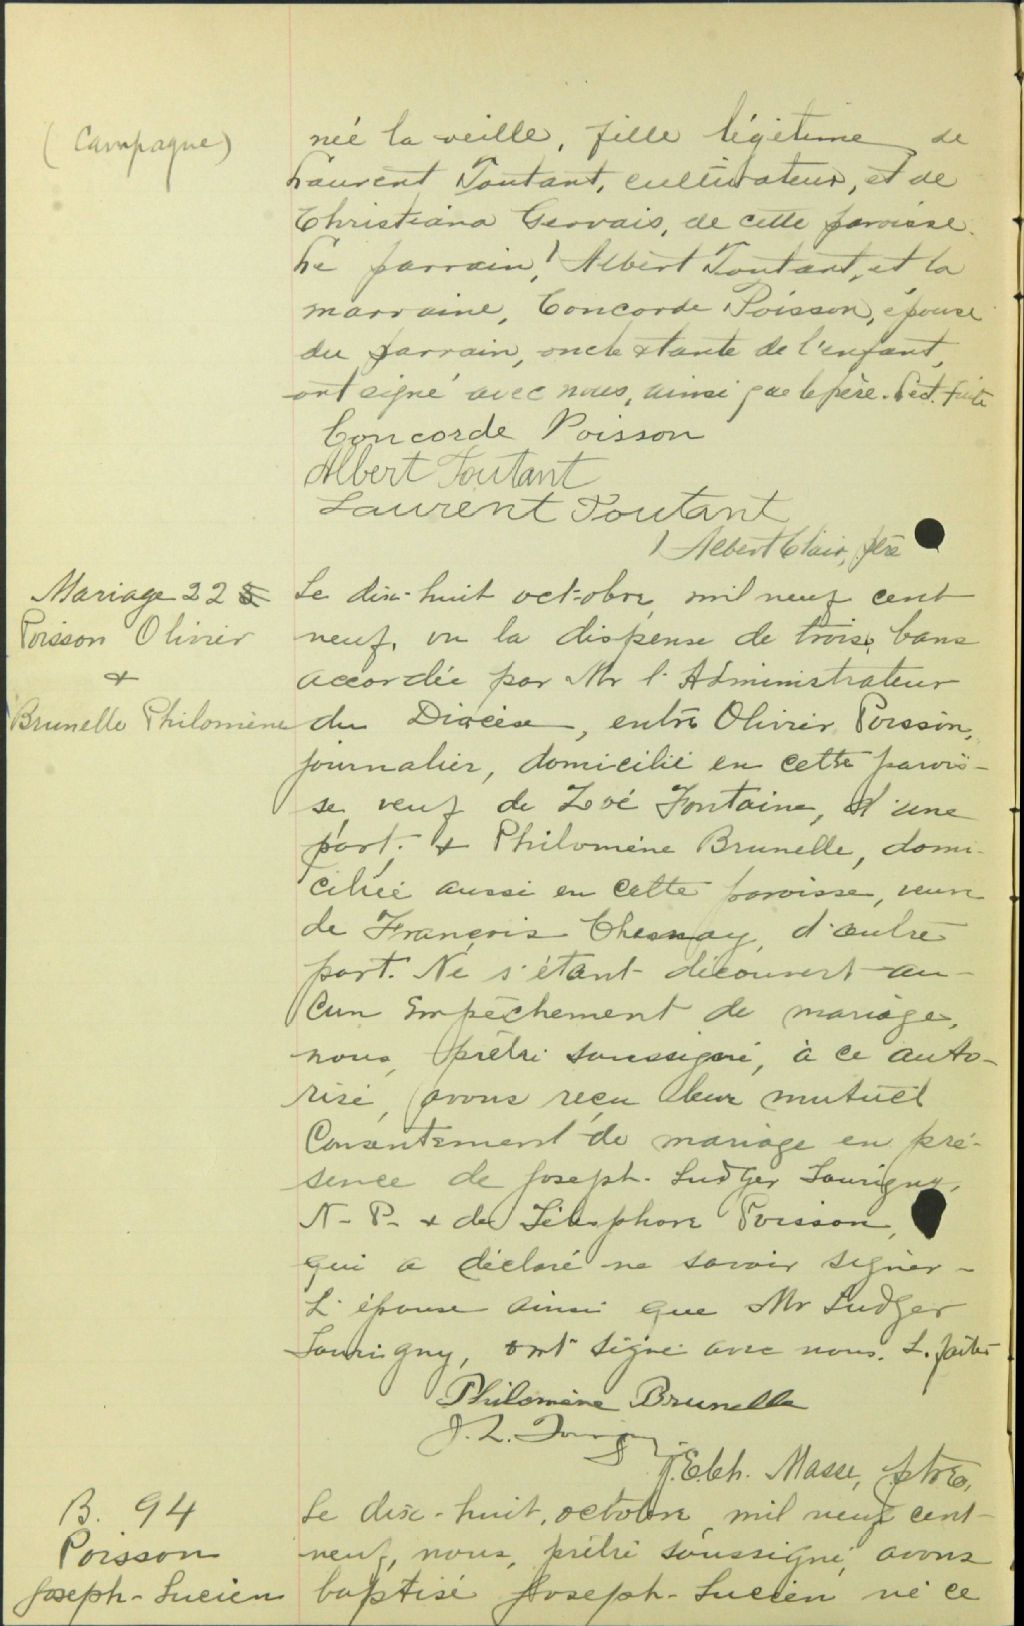 (Campagne)
née la veille, fille légitime de
Laurent Toutant, cultivateur, et de
Christiana Gervais, de cette paroisse.
Le parrain, Albert Toutant, et la
marraine, Concorde Poisson, épouse
du parrain, oncle & tante de l'enfant,
ont signé avec nous, ainsi que le père. Lect. faite
Concorde Poisson
Albert Toutant
Laurent Toutant
Albert Clair, ptre
Mariage 22
Poisson Olivier
&
Brunelle Philomène
Le dix-huit octobre mil neuf cent
neuf, vu la dispense de trois bans
accordée par Mr l'Administrateur
du Diocèse, entre Olivier Poisson,
journalier, domicilié en cette parois-
se, veuf de Zoé Fontaine, d'une
part, & Philomène Brunelle, domi-
ciliée aussi en cette paroisse, veuve
de François Chesnay, d'autre
part. Ne s'étant découvert au-
cun empêchement de mariage,
nous, prêtre soussigné, à ce auto-
risé, avons reçu leur mutuel
Consentement de mariage en pré-
sence de Joseph-Ludger Tourigny,
N-P- & de Télesphore Poisson,
qui a déclaré ne savoir signer-
L'épouse ainsi que Mr Ludger
Tourigny, ont signé avec nous. L. faite
Philomène Brunelle
J. L. Tourigny
J. E. Masse, ptre,
B. 94
Poisson
Joseph-Lucien
Le dix-huit, octobre mil neuf cent-
neuf, nous, prêtre soussigné, avons
baptisé Joseph-Lucien né ce